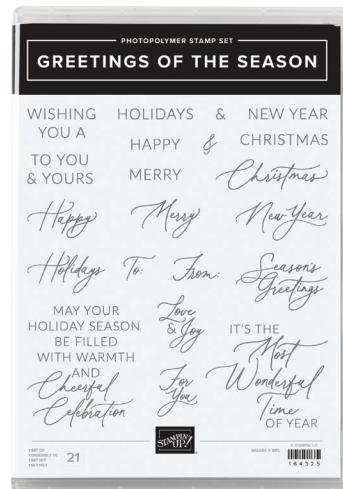 PHOTOPOLYMER STAMP SET
GREETINGS OF THE SEASON
WISHING
YOU A
HOLIDAYS
&
NEW YEAR
HAPPY
&
CHRISTMAS
TO YOU
& YOURS
MERRY
Christmas
Happy
Merry
New Year
Holidays
To:
From:
Season's
Greetings
MAY YOUR
HOLIDAY SEASON
BE FILLED
WITH WARMTH
AND
Cheerful
Celebration
Love
& Joy
For
You
IT'S THE
Most
Wonderful
Time
OF YEAR
21
STAMPIN' UP!
164325